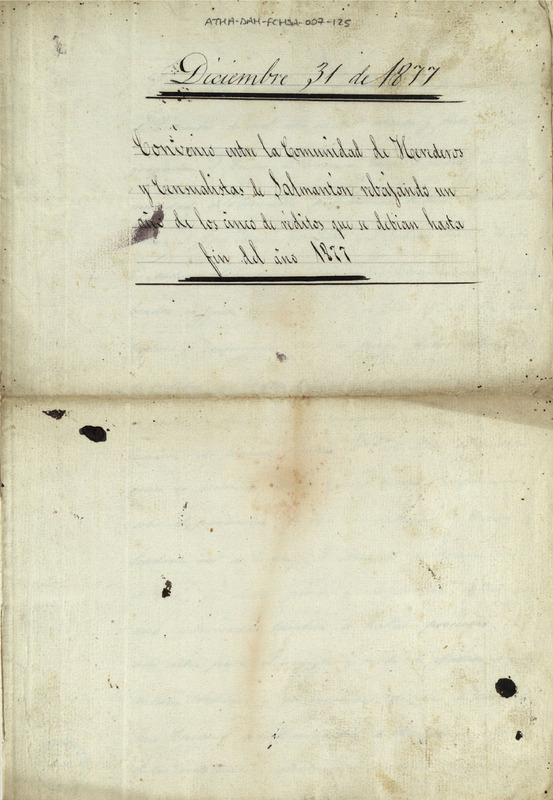 ATHA-DAH-FCHSA-007-125
Diciembre 31 de 1877
Convenio entre la Comunidad de Herederos
y Censualistas de Salmantón rebajando un
año de los cinco de réditos que se debían hasta
fin del año 1877